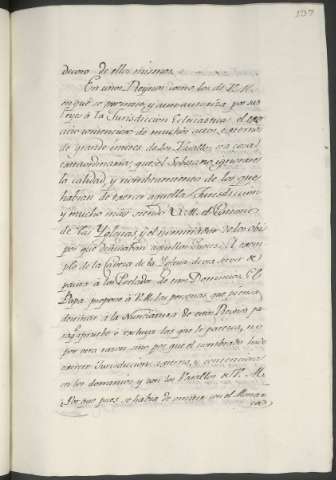 137
decoro de ellos mismos.
En unos Reynos como los de V. M.
en que se permite, y aun autoriza por sus
Leyes à la Jurisdiccion Eclesiastica el
cio contencioso de muchos autos, externos
de grande interes de los Vasallos era cosa
extraordinaria que el Soberano ignorase
la calidad, y nombramiento de los que
habian de exercer aquella Jurisdiccion
y mucho mas siendo V. M. el Patrono
de las Yglesias, y el nominador de los obis
pos que destinaban aquellos Jueces. El exem
plo de la Cabeza de la Yglesia devia servir de
pauta à los Prelados de estos Dominios. El
Papa propone à V. M. las personas que piensa
destinar à la Nunciatura de estos Reynos, pa
ra que apruebe ò excluya las que le parezca, no
por otra razon, sino por que el nombrado ha de
exercer Jurisdiccion externa, y contenciosa
en los dominios, y con los Vasallos de V. M.
Por que pues se habia de omitir con el Monar
ca